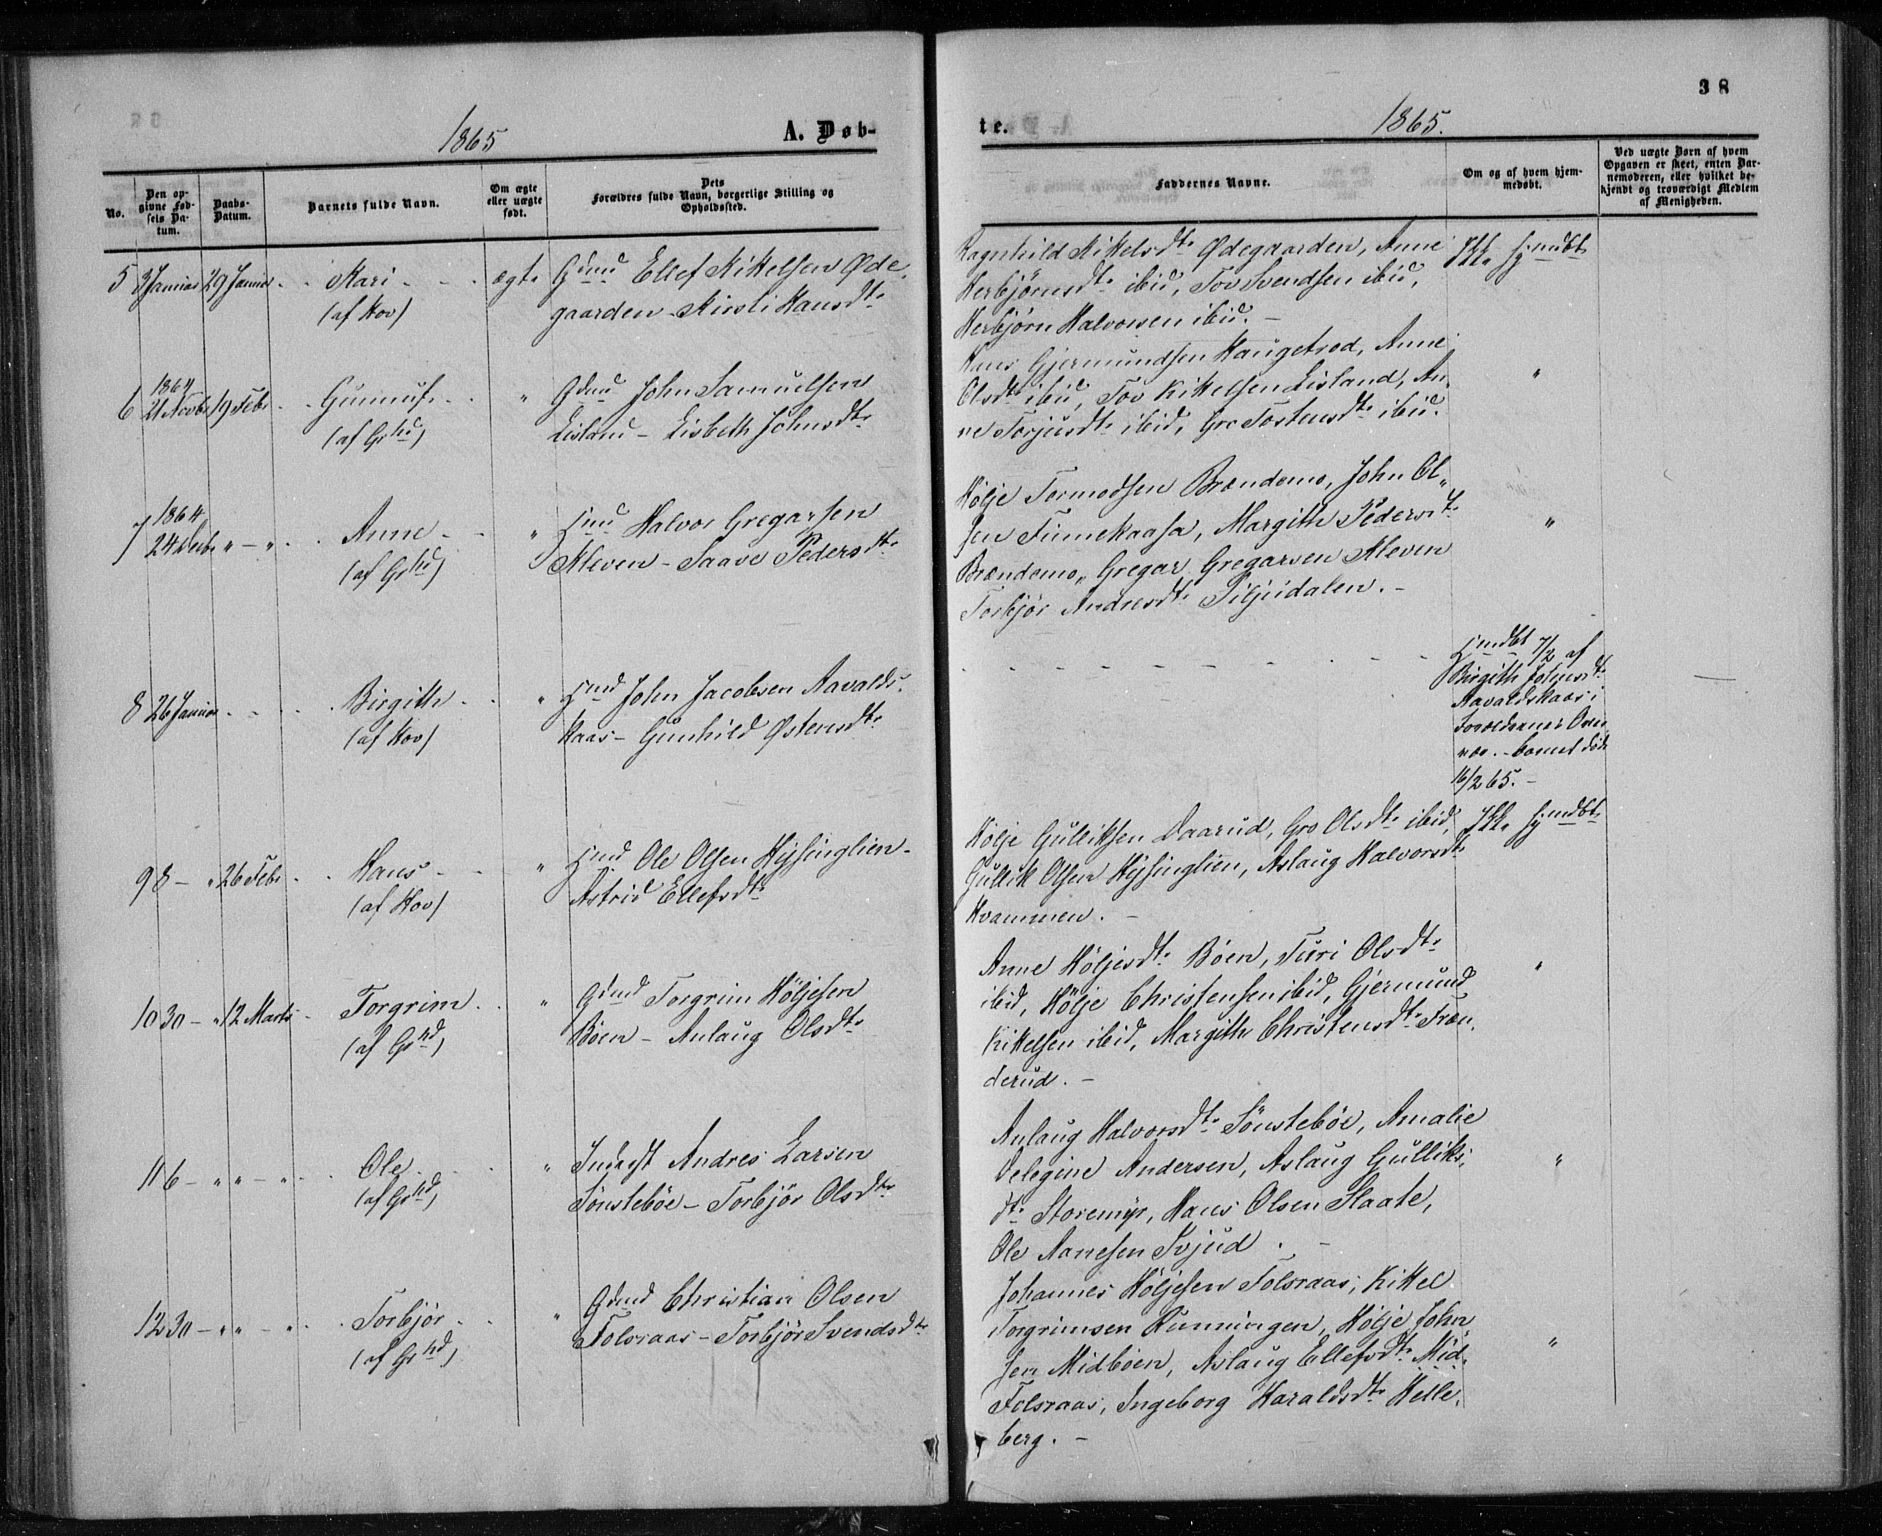 38
1865
A. Døb-
te.
1865.
No.
Den op-
givne Fød-
sels Da-
tum.
Daabs-
Datum.
Barnets fulde Navn.
Om ægte
eller uægte
født.
Dets
Forældres fulde Navn, borgerlige Stilling og
Opholdssted.
Faddernes Navne.
Om og af hvem hjem-
medøbt.
Ved uægte Børn af hvem
Opgaven er skeet, enten Bar-
nemoderen, eller hvilket be-
kjendt og troværdigt Medlem
af Menigheden.
5 3 Januar 29 Januar - - Kari - - - ægte Gdmd Ellef Kittelsen Øde-
(af Hov) gaarden - Kirsti Hansdtr
Ragnhild Kittelsdtr Ødegaarden, Anne
Herbjørnsdtr ibid, Tov Svendsen ibid,
Herbjørn Halvorsen ibid. -
Ikke hjmdbt
6 1864 21 Novbr 19 Febr - - Gunnuf - - " Gdmd John Samuelsen
(af Grhd) Lisland - Lisbeth Johnsdtr
Hans Gjermundsen Haugetrod, Anne
Olsdtr ibid, Tov Kittelsen Lisland, An-
ne Torjusdtr ibid, Gro Tostensdtr ibid.
"
7 1864 24 Decbr " - " - - Anne - - " Hmd Halvor Gregarsen
(af Grhd) Kleven - Saave Pedersdtr
Hølje Tormodsen Brændemo, John Ol-
sen Finnekaasa, Margith Pedersdtr
Brændemo, Gregar Gregarsen Kleven
Torbjør Andresdtr Siljudalen. -
"
8 26 Januar - - - - Birgith - - " Hmd John Jacobsen Aavalds-
(af Hov) kaas - Gunhild Østensdtr
Hmdbt 7/2 af
Birgith Johnsdtr
Aavaldskaas i
Forældrenes Over-
vær. - barnet død
16/2 65. -
9 8 - " 26 Febr - - Hans - - " Hmd Ole Olsen Hejsinglien -
(af Hov) Astrid Ellefsdtr
Hølje Gulliksen Daarud, Gro Olsdtr ibid,
Gullik Olsen Hejsinglien, Aslaug Halvorsdtr
Kvammen. -
Ikke hjmdbt
10 30 - " 12 Marts - Torgrim - - " Gdmd Torgrim Høljesen
(af Grhd) Bøen - Anlaug Olsdtr
Anne Høljesdtr Bøen, Turi Olsdtr
ibid, Hølje Christensen ibid, Gjermund
Kittelsen ibid, Margith Christensdtr Træn-
derud. -
"
11 6 - " " - " - - Ole - - " Inderst Andres Larsen
(af Grhd) Sønstebøe - Torbjør Olsdtr
Anlaug Halvorsdtr Sønstebøe, Amalie
Andersen, Aslaug Gulliks-
dtr Storemyr, Hans Olsen Slaate,
Ole Aanesen Svjud. -
"
12 30 - " " - " - - Torbjør - - " Gdmd Christian Olsen
(af Grhd) Folsraas - Torbjør Svendsdtr
Johannes Høljesen Folsraas, Kittel
Torgrimsen Runningen, Hølje John-
sen Midbøen, Aslaug Ellefsdtr Mid-
Folsraas, Ingeborg Haraldsdtr Helle-
berg. -
"